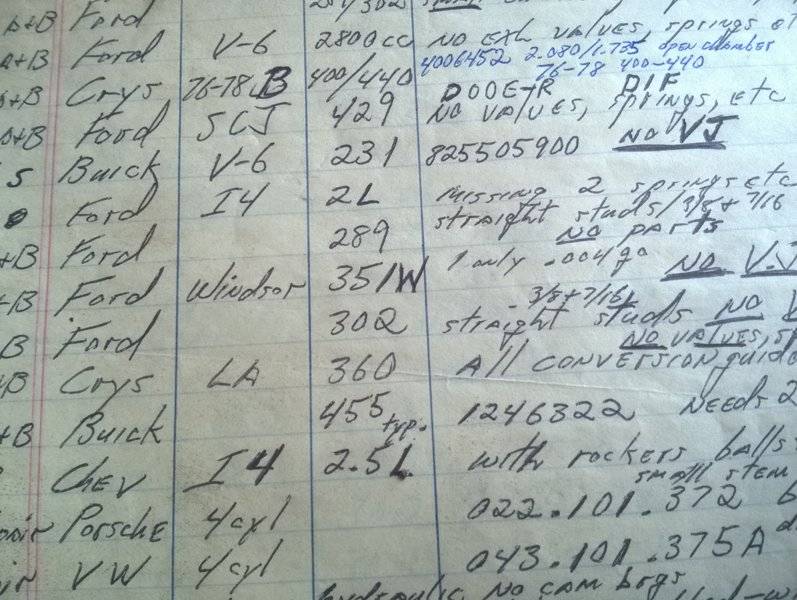 A+B Ford 302
A+B Ford V-6 2800cc NO EXH VALVES, springs et
4006452 2.080/1.735 open chamber
A+B Crys 76-78 B 400/440 76-78 400-440
DOOE-R DIF
A+B Ford SCJ 429 NO VALVES, springs, etc
S Buick V-6 231 825505900 NO VJ
Ford I4 2L missing 2 springs etc
straight studs/3/8 + 7/16
+B Ford 289 NO PARTS
+B Ford Windsor 351W 1 only .004 go NO V.J
- 3/8 + 7/16
B Ford 302 straight studs NO V
NO VALVES, S
+B Crys LA 360 All CONVERSION guid
+B Buick 455 typ. 1246322 NEEDS 2
CHEV I4 2.5L with rockers balls
small stem
Porsche 4cyl 022.101.372
VW 4cyl 043.101.375A
hydraulic NO CAM brgs